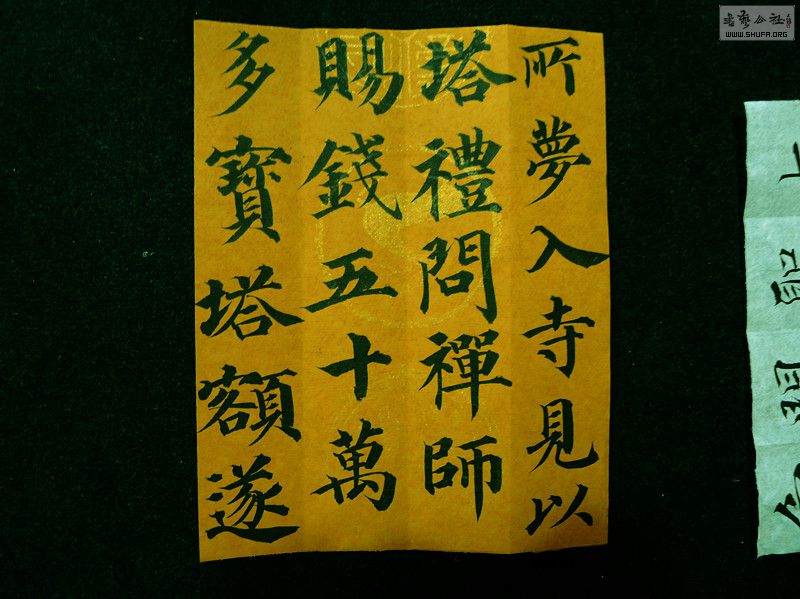 所夢入寺見以
塔禮問禪師
賜錢五十萬
多寶塔額遂
書藝公社
WWW.SHUFA.ORG